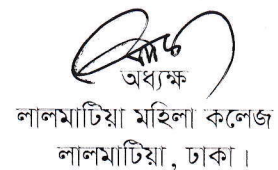 অধ্যক্ষ
লালমাটিয়া মহিলা কলেজ
লালমাটিয়া, ঢাকা।